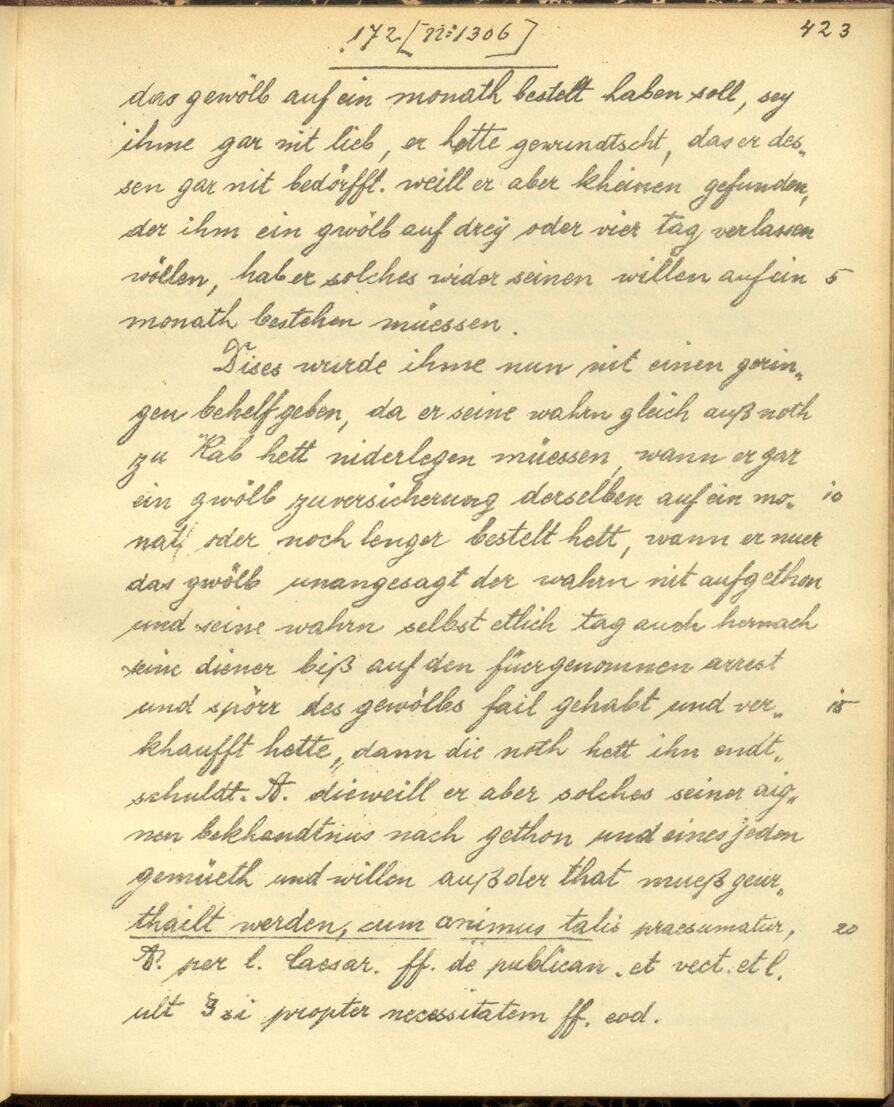 172 [nº 1306] 423
das gewölb auf ein monath bestelt haben soll, sey
ihme gar nit lieb, er hette gewundtscht, das er des„
sen gar nit bedörfft. weill er aber kheinen gefunden,
der ihm ein gwölb auf drey oder vier tag verlassen
wöllen, hab er solches wider seinen willen auf ein 5
monath bestehen müessen.
Dises wurde ihme nun nit einen gerin„
gen behelf geben, da er seine wahrn gleich auß noth
zu Hab hett niderlegen müessen, wann er gar
ein gwölb zuversicherung derselben auf ein mo„ 10
nat oder noch lenger bestelt hett, wann er nuer
das gwölb unangesagt der wahrn nit aufgethon
und seine wahrn selbst etlich tag auch hernach
seine diener biß auf den füergenomnen arrest
und spörr des gewölbs fail gehabt und ver„ 15
khaufft hette, dann die noth hett ihn endt„
schuldt. A. dieweill er aber solches seiner aig„
nen bekhandtnus nach gethon und eines jeden
gemüeth und willen auß der that mueß geur„
thailt werden, cum animus talis praesumatur, 20
A. per l. Caesar. ff. de publican. et vect. et l.
ult § si propter necessitatem ff. eod.